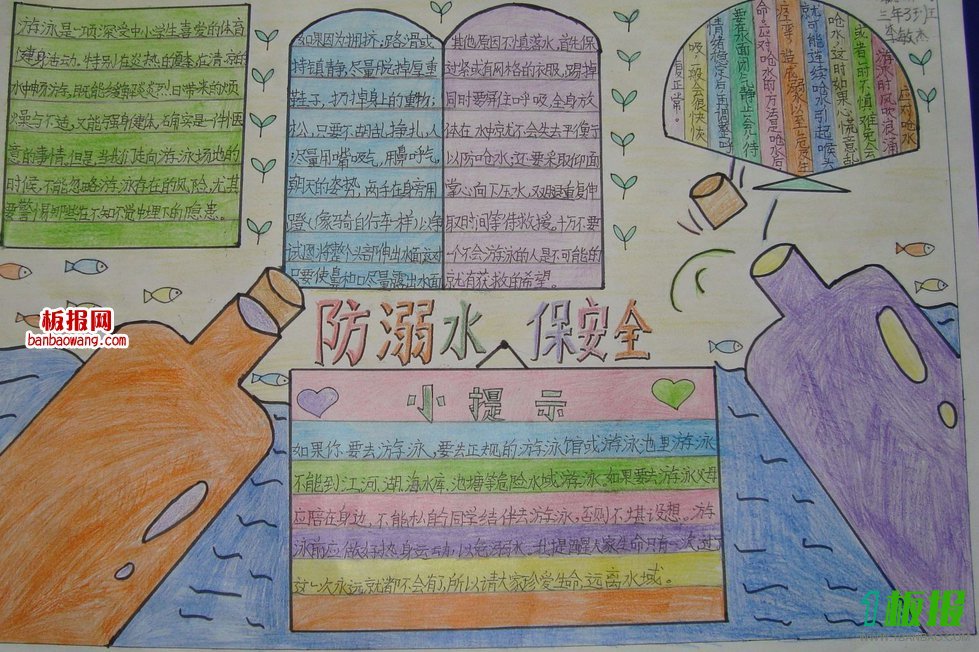 游泳是一项深受中小学生喜爱的体育
健身活动。特别在炎热的夏季,在清凉的
水中畅游,既能缓解炎炎烈日带来的烦
燥与不适,又能强身健体,确实是一件惬
意的事情。但是,当我们走向游泳场地的
时候,不能忽略游泳存在的风险,尤其
要警惕那些在不知不觉中埋下的隐患。
如果因为拥挤,路滑或
持镇静,尽量脱掉厚重
鞋子,扔掉身上的重物;
松,只要不胡乱挣扎,人
尽量用嘴吸气,用鼻呼气,
朝天的姿势,两手在身旁用
蹬(像骑自行车一样)以争
试图将整个头部伸出水面,这对
只要使鼻和口尽量露出水面
其他原因不慎落水,首先保
过紧或有风格的衣服,踢掉
同时要屏住呼吸,全身放
体在水中就不会失去平衡;
以防呛水;还要采取仰面
掌心向下压水,双腿反复伸
取时间等待救援。千万不要
一个不会游泳的人是不可能的
就有获救的希望。
应对呛水
游泳时风吹浪涌
或者的不慎难免会
呛水,这时如果心慌意乱
就可能连续呛水引起喉头
痉挛,带来溺水甚至危及生
命。应对呛水的方法是呛水后
要在水面闭气静止会儿,待
情绪稳定后,再调整呼
吸,一般会很快恢
复正常。
三年3班
防溺水 保安全
小提示
如果你要去游泳,要去正规的游泳馆或游泳池里游泳
不能到江河、湖、海水库、池塘等危险水域游泳,如果要去游泳父母
应陪在身边,不能私自和同学结伴去游泳,否则不堪设想。游
泳前应做好热身运动,以免溺水。我提醒大家生命只有一次,过了
这一次永远就都不会有了,所以请大家珍爱生命,远离水域。
板报网
banbaowang.com
板报